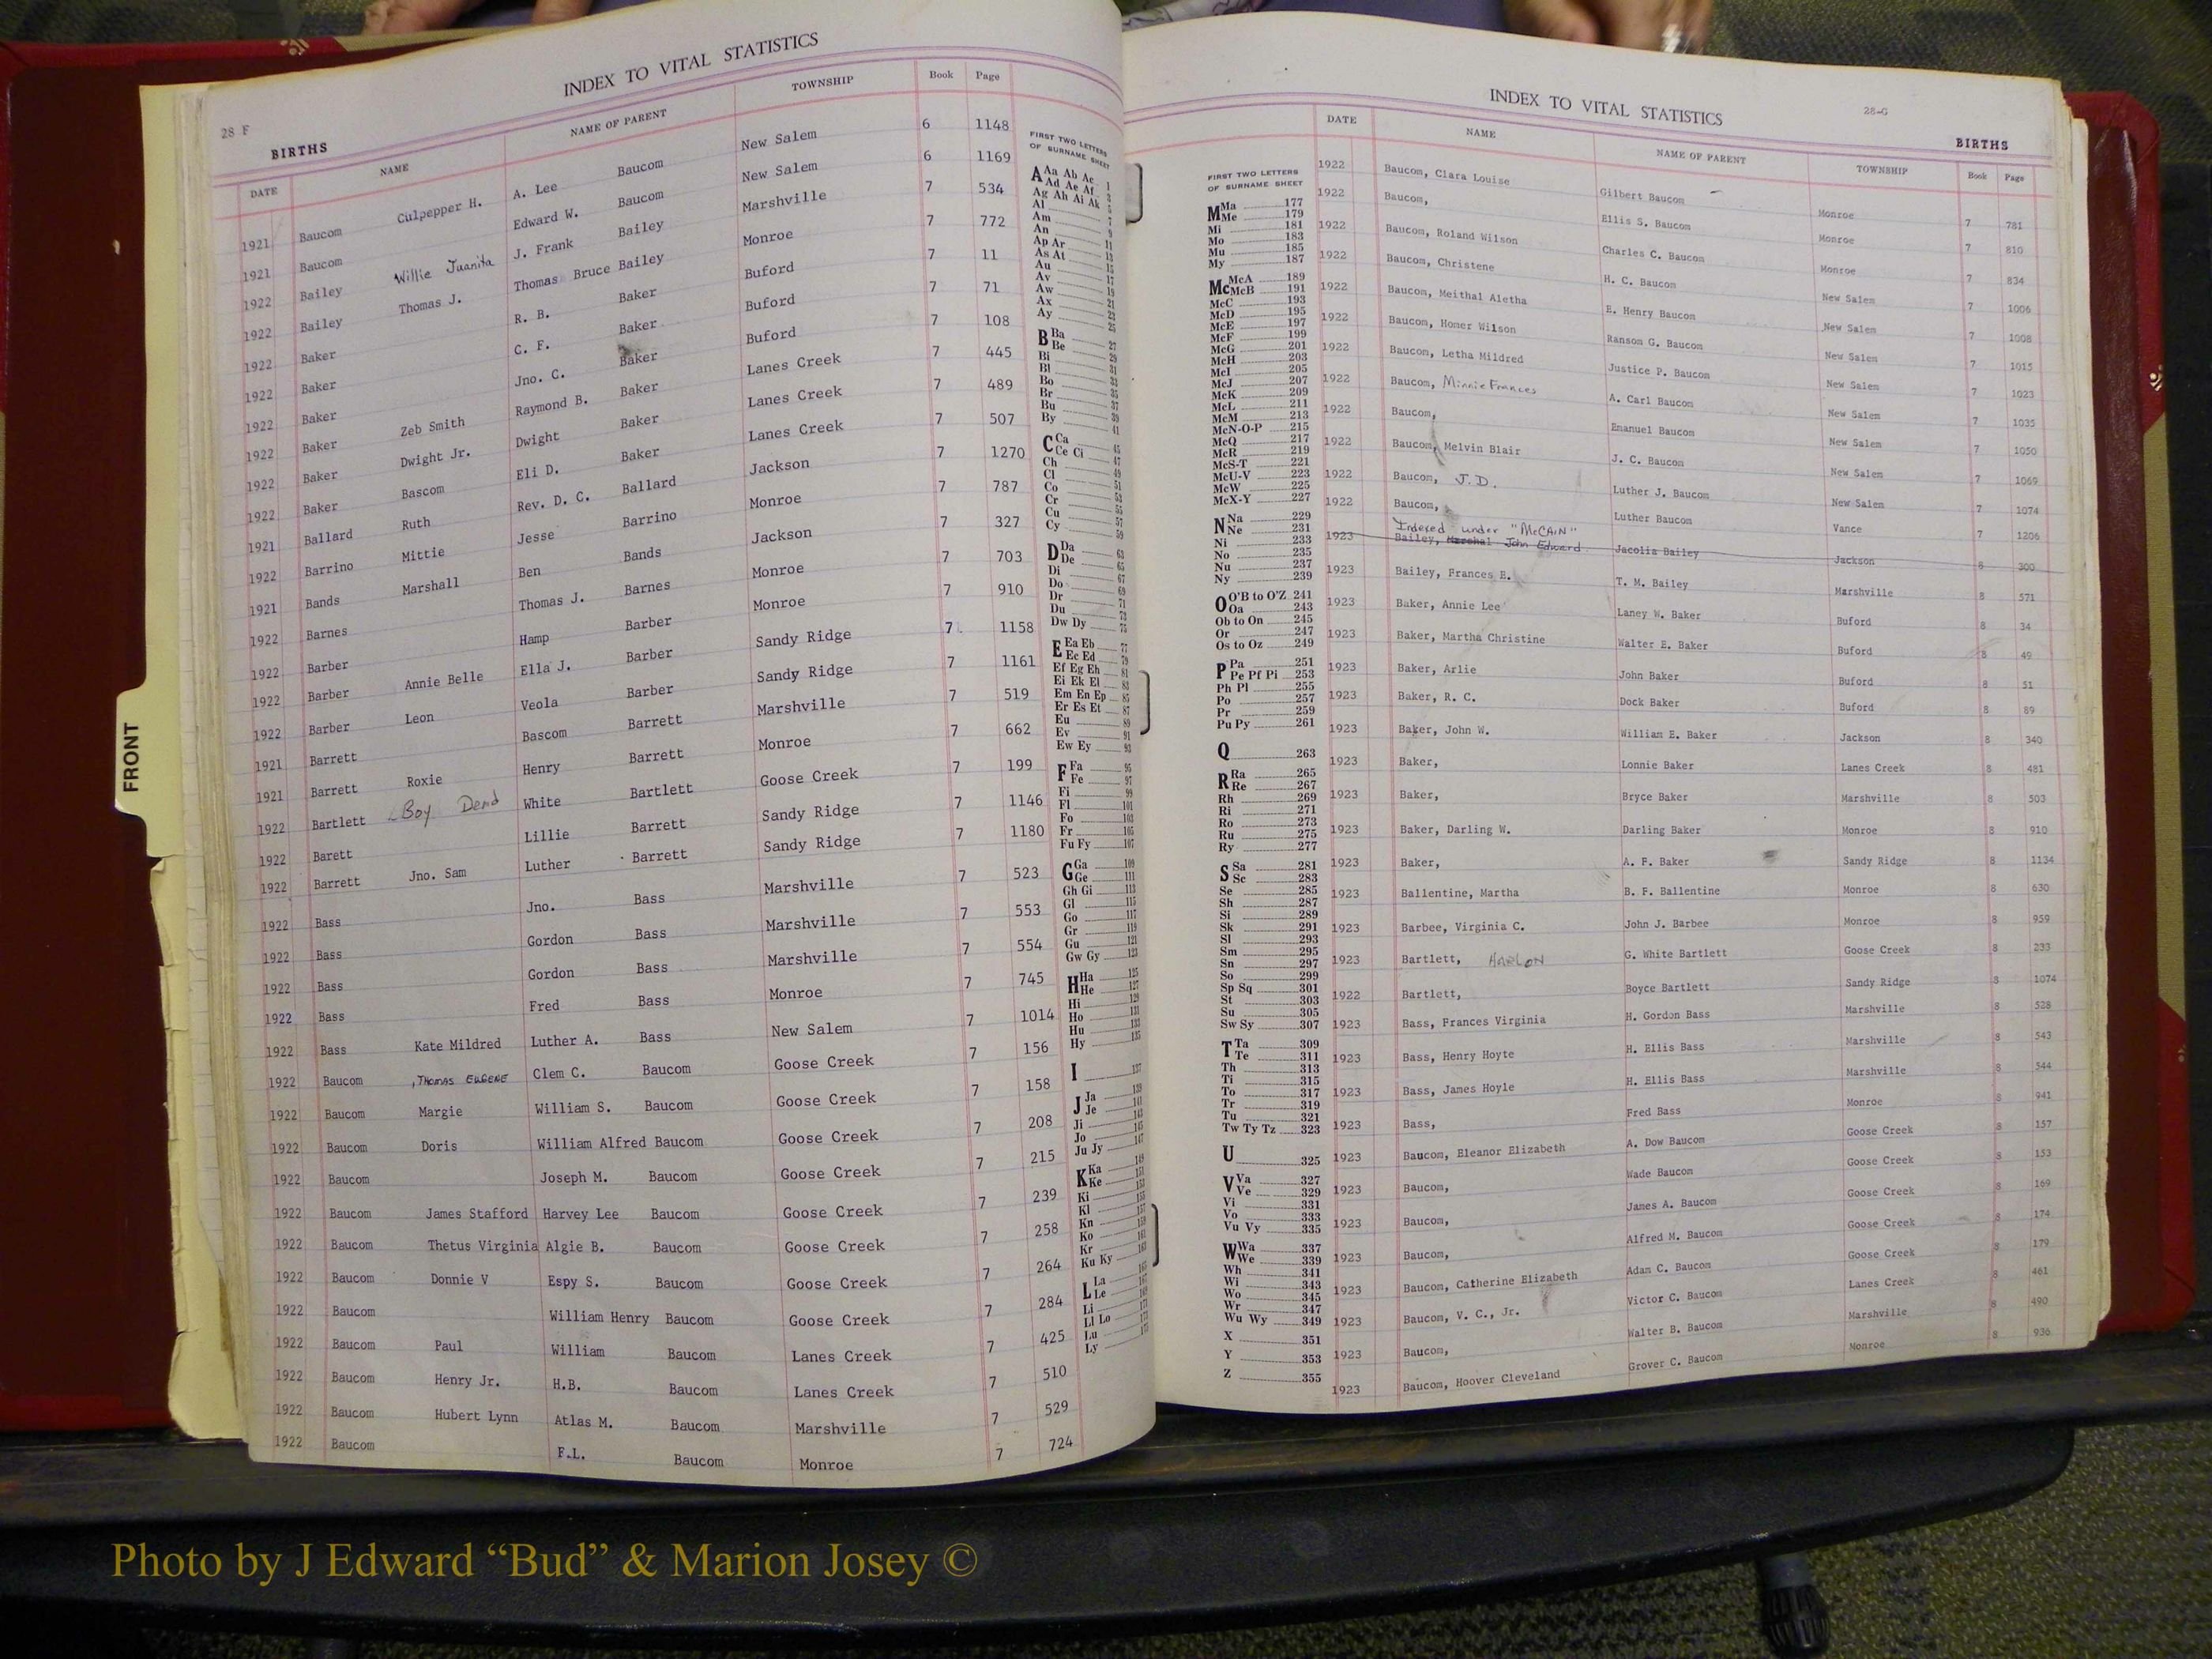 28 F
INDEX TO VITAL STATISTICS
BIRTHS
DATE NAME NAME OF PARENT TOWNSHIP Book Page
1921 Baucom Culpepper H. A. Lee Baucom New Salem 6 1148
1921 Baucom Edward W. Baucom New Salem 6 1169
1922 Bailey Willie Juanita J. Frank Bailey Marshville 7 534
1922 Bailey Thomas J. Thomas Bruce Bailey Monroe 7 772
1922 Baker R. B. Baker Buford 7 11
1922 Baker C. F. Baker Buford 7 71
1922 Baker Jno. C. Baker Buford 7 108
1922 Baker Zeb Smith Raymond B. Baker Lanes Creek 7 445
1922 Baker Dwight Jr. Dwight Baker Lanes Creek 7 489
1922 Baker Bascom Eli D. Baker Lanes Creek 7 507
1921 Ballard Ruth Rev. D. C. Ballard Jackson 7 1270
1922 Barrino Mittie Jesse Barrino Monroe 7 787
1921 Bands Marshall Ben Bands Jackson 7 327
1922 Barnes Thomas J. Barnes Monroe 7 703
1922 Barber Hamp Barber Monroe 7 910
1922 Barber Annie Belle Ella J. Barber Sandy Ridge 7 1158
1922 Barber Leon Veola Barber Sandy Ridge 7 1161
1921 Barrett Bascom Barrett Marshville 7 519
1921 Barrett Roxie Henry Barrett Monroe 7 662
1922 Bartlett Boy Dead White Bartlett Goose Creek 7 199
1922 Barett Lillie Barrett Sandy Ridge 7 1146
1922 Barrett Jno. Sam Luther Barrett Sandy Ridge 7 1180
1922 Bass Jno. Bass Marshville 7 523
1922 Bass Gordon Bass Marshville 7 553
1922 Bass Gordon Bass Marshville 7 554
1922 Bass Fred Bass Monroe 7 745
1922 Bass Kate Mildred Luther A. Bass New Salem 7 1014
1922 Baucom Thomas Eugene Clem C. Baucom Goose Creek 7 156
1922 Baucom Margie William S. Baucom Goose Creek 7 158
1922 Baucom Doris William Alfred Baucom Goose Creek 7 208
1922 Baucom Joseph M. Baucom Goose Creek 7 215
1922 Baucom James Stafford Harvey Lee Baucom Goose Creek 7 239
1922 Baucom Thetus Virginia Algie B. Baucom Goose Creek 7 258
1922 Baucom Donnie V Espy S. Baucom Goose Creek 7 264
1922 Baucom William Henry Baucom Goose Creek 7 284
1922 Baucom Paul William Baucom Lanes Creek 7 425
1922 Baucom Henry Jr. H.B. Baucom Lanes Creek 7 510
1922 Baucom Hubert Lynn Atlas M. Baucom Marshville 7 529
1922 Baucom F.L. Baucom Monroe 7 724
FIRST TWO LETTERS
OF SURNAME SHEET
A Aa Ab Ac 1
Ad Ae Af 3
Ag Ah Ai Ak 5
Al 7
Am 9
An
Ap Ar 11
As At 13
Au 15
Av 17
Aw 19
Ax 21
Ay
B Ba 27
Be 29
Bi 31
Bl
Bo 33
Br 35
Bu 37
By
C Ca 45
Ce Ci 47
Ch 49
Cl 51
Co 53
Cr 55
Cu 57
Cy 59
D Da 63
De 65
Di 67
Do 69
Dr 71
Du 73
Dw Dy 75
E Ea Eb 77
Ec Ed 79
Ef Eg Eh 81
Ei Ek El 83
Em En Ep 85
Er Es Et 87
Eu 89
Ev 91
Ew Ey 93
F Fa 95
Fe 97
Fi 99
Fl 101
Fo 103
Fr 105
Fu Fy 107
G Ga 109
Ge 111
Gh Gi 113
Gl 115
Go 117
Gr 119
Gu 121
Gw Gy 123
H Ha 125
He 127
Hi 129
Ho 131
Hu 133
Hy 135
I 137
J Ja 139
Je 141
Ji 143
Jo 145
Ju Jy 147
K Ka 149
Ke 151
Ki 153
Kl 155
Kn 157
Ko 159
Kr 161
Ku Ky 163
L La 165
Le 167
Li 169
Ll Lo 171
Lu 173
Ly 175
FRONT
INDEX TO VITAL STATISTICS
28-G
BIRTHS
FIRST TWO LETTERS
OF SURNAME SHEET
M Ma 177
Me 179
Mi 181
Mo 183
Mu 185
My 187
Mc McA 189
McB 191
McC 193
McD 195
McE 197
McF 199
McG 201
McH 203
McI 205
McJ 207
McK 209
McL 211
McM 213
McN-O-P 215
McQ 217
McR 219
McS-T 221
McU-V 223
McW 225
McX-Y 227
N Na 229
Ne 231
Ni 233
No 235
Nu 237
Ny 239
O O'B to O'Z 241
Oa 243
Ob to On 245
Or 247
Os to Oz 249
P Pa 251
Pe Pf Pi 253
Ph Pl 255
Po 257
Pr 259
Pu Py 261
Q 263
R Ra 265
Re 267
Rh 269
Ri 271
Ro 273
Ru 275
Ry 277
S Sa 281
Sc 283
Se 285
Sh 287
Si 289
Sk 291
Sl 293
Sm 295
Sn 297
So 299
Sp Sq 301
St 303
Su 305
Sw Sy 307
T Ta 309
Te 311
Th 313
Ti 315
To 317
Tr 319
Tu 321
Tw Ty Tz 323
U 325
V Va 327
Ve 329
Vi 331
Vo 333
Vu Vy 335
W Wa 337
We 339
Wh 341
Wi 343
Wo 345
Wr 347
Wu Wy 349
X 351
Y 353
Z 355
DATE NAME NAME OF PARENT TOWNSHIP Book Page
1922 Baucom, Clara Louise Gilbert Baucom Monroe 7 781
1922 Baucom, Ellis S. Baucom Monroe 7 810
1922 Baucom, Roland Wilson Charles C. Baucom Monroe 7 834
1922 Baucom, Christene H. C. Baucom New Salem 7 1006
1922 Baucom, Meithal Aletha E. Henry Baucom New Salem 7 1008
1922 Baucom, Homer Wilson Ransom G. Baucom New Salem 7 1015
1922 Baucom, Letha Mildred Justice P. Baucom New Salem 7 1023
1922 Baucom, Minnie Frances A. Carl Baucom New Salem 7 1035
1922 Baucom, Emanuel Baucom New Salem 7 1050
1922 Baucom, Melvin Blair J. C. Baucom New Salem 7 1069
1922 Baucom, J.D. Luther J. Baucom New Salem 7 1074
1922 Baucom, Luther Baucom Vance 7 1206
Indexed under "McCAIN"
1923 Bailey, Marshal John Edward Jacolia Bailey Jackson 8 300
1923 Bailey, Frances E. T. M. Bailey Marshville 8 571
1923 Baker, Annie Lee Laney W. Baker Buford 8 34
1923 Baker, Martha Christine Walter E. Baker Buford 8 49
1923 Baker, Arlie John Baker Buford 8 51
1923 Baker, R. C. Dock Baker Buford 8 89
1923 Baker, John W. William E. Baker Jackson 8 340
1923 Baker, Lonnie Baker Lanes Creek 8 481
1923 Baker, Bryce Baker Marshville 8 503
1923 Baker, Darling W. Darling Baker Monroe 8 910
1923 Baker, A. F. Baker Sandy Ridge 8 1134
1923 Ballentine, Martha B. F. Ballentine Monroe 8 630
1923 Barbee, Virginia C. John J. Barbee Monroe 8 959
1923 Bartlett, HARLON G. White Bartlett Goose Creek 8 233
1922 Bartlett, Boyce Bartlett Sandy Ridge 8 1074
1923 Bass, Frances Virginia H. Gordon Bass Marshville 8 528
1923 Bass, Henry Hoyte H. Ellis Bass Marshville 8 543
1923 Bass, James Hoyle H. Ellis Bass Marshville 8 544
1923 Bass, Fred Bass Monroe 8 941
1923 Baucom, Eleanor Elizabeth A. Dow Baucom Goose Creek 8 157
1923 Baucom, Wade Baucom Goose Creek 8 153
1923 Baucom, James A. Baucom Goose Creek 8 169
1923 Baucom, Alfred M. Baucom Goose Creek 8 174
1923 Baucom, Catherine Elizabeth Adam C. Baucom Goose Creek 8 179
1923 Baucom, V. C., Jr. Victor C. Baucom Lanes Creek 8 461
1923 Baucom, Walter B. Baucom Marshville 8 490
1923 Baucom, Hoover Cleveland Grover C. Baucom Monroe 8 936
Photo by J Edward “Bud” & Marion Josey ©